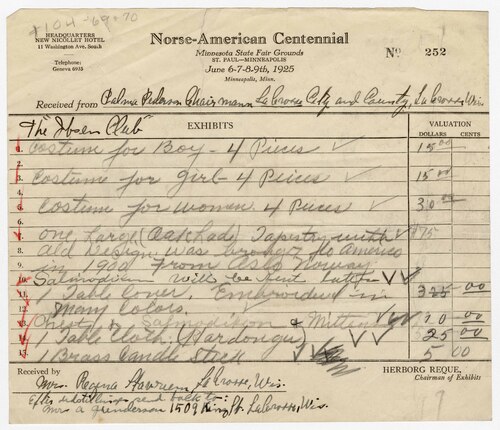 1104-69-70
HEADQUARTERS
NEW NICOLLET HOTEL
11 Washington Ave. South
Telephone:
Geneva 6935
Norse-American Centennial
Minnesota State Fair Grounds
ST. PAUL—MINNEAPOLIS
June 6-7-8-9th, 1925
Minneapolis, Minn.
No 252
Received from Palma Pederson Chairmann LaCrosse City and County, LaCrosse, Wis.
"The Ibsen Club" EXHIBITS VALUATION
DOLLARS CENTS
1. Costume for Boy - 4 Pieces ✓ 15 00
2.
3. Costume for Girl - 4 Pieces ✓ 15 00
4.
5. Costume for Women 4 Pieces ✓ 30 00
6.
7. one Large Tapestry with ✓ $75
8. old Design, was brought to America
9. in 1900 From Oslo Norway
10. Salmodicon will be sent latter ✓✓
11. 1 Table Cover, Embroidered in 325 00
12. Many Colors.
13. Salmodikon & Mittens ✓✓ 10 00
14. 1 Table Cloth, (Hardanger) ✓✓ 25 00
15. 1 Brass Candle Stick ✓✓ 5 00
Received by
HERBORG REQUE,
Chairman of Exhibits
Mrs. Regina LaCrosse, Wis.
After exhibition send back to:
Mrs a Gunderson 1509 King St. LaCrosse, Wis.